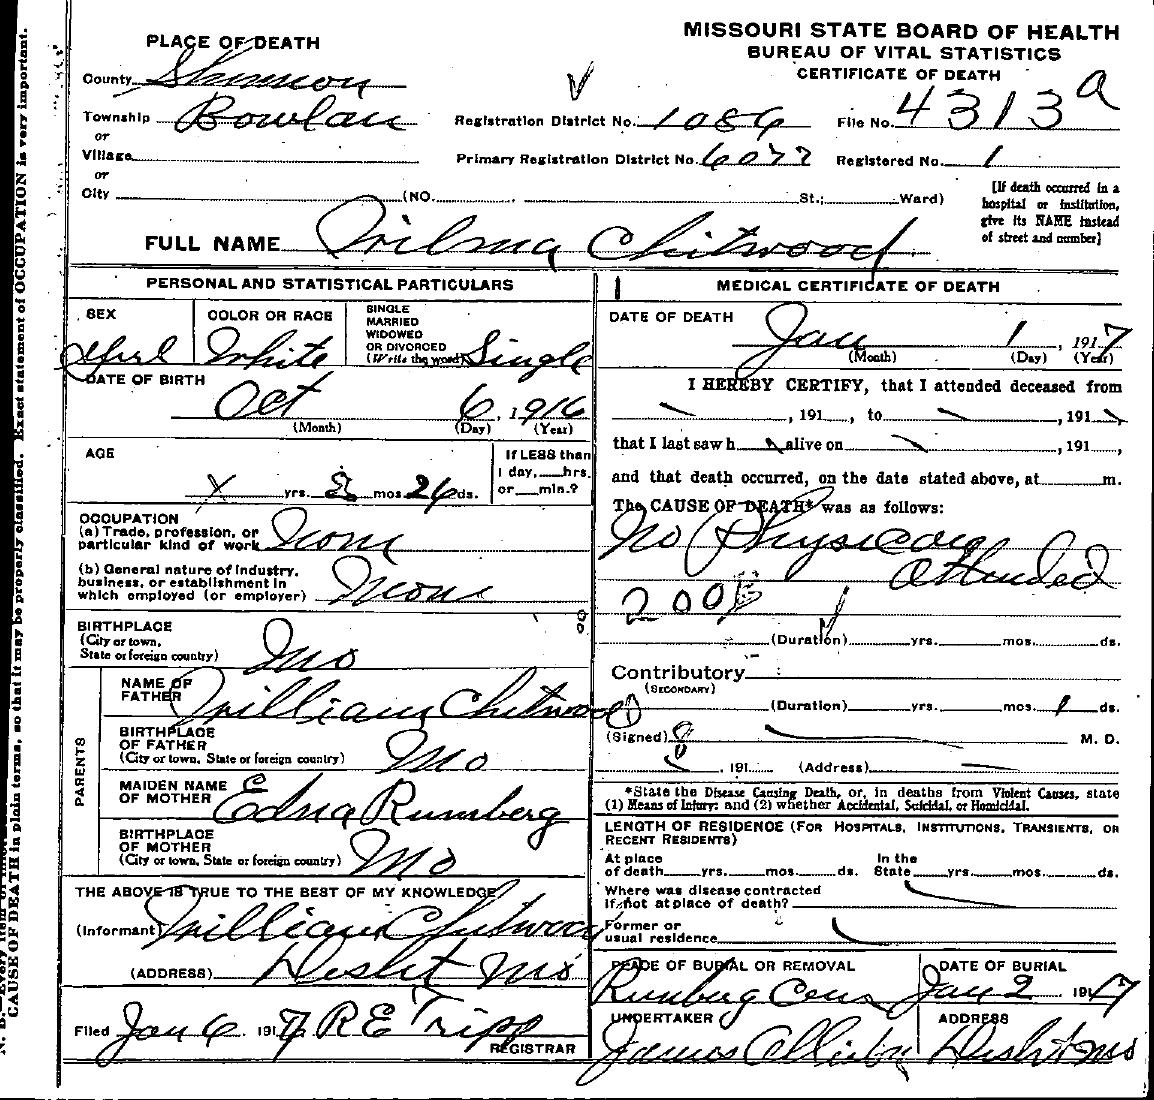 MISSOURI STATE BOARD OF HEALTH
BUREAU OF VITAL STATISTICS
CERTIFICATE OF DEATH
PLACE OF DEATH
County Shannon
Township Bowlan
or
Village
or
City (NO. St.; Ward)
Registration District No. 1086 File No. 4313 a
Primary Registration District No. 6077 Registered No. 1
[If death occurred in a
hospital or institution,
give its NAME instead
of street and number]
FULL NAME Wilma Chitwood
PERSONAL AND STATISTICAL PARTICULARS
SEX Girl
COLOR OR RACE White
SINGLE
MARRIED
WIDOWED
OR DIVORCED
(Write the word) Single
DATE OF BIRTH
Oct 6, 1916
(Month) (Day) (Year)
AGE
If LESS than
1 day, hrs.
or min.?
X yrs. 2 mos. 26 ds.
OCCUPATION
(a) Trade, profession, or
particular kind of work None
(b) General nature of industry,
business, or establishment in
which employed (or employer) None
BIRTHPLACE
(City or town,
State or foreign country) Mo
PARENTS
NAME OF
FATHER William Chitwood
BIRTHPLACE
OF FATHER
(City or town, State or foreign country) Mo
MAIDEN NAME
OF MOTHER Edna Rumberg
BIRTHPLACE
OF MOTHER
(City or town, State or foreign country) Mo
THE ABOVE IS TRUE TO THE BEST OF MY KNOWLEDGE
(Informant) William Chitwood
(ADDRESS) Mo
Filed Jan 6 1917 R E Tripp
REGISTRAR
MEDICAL CERTIFICATE OF DEATH
DATE OF DEATH
Jan 1, 1917
(Month) (Day) (Year)
I HEREBY CERTIFY, that I attended deceased from
, 191 , to , 191
that I last saw h alive on , 191 ,
and that death occurred, on the date stated above, at m.
The CAUSE OF DEATH* was as follows:
No Physician
Attended
(Duration) yrs. mos. ds.
Contributory
(SECONDARY)
(Duration) yrs. mos. 1 ds.
(Signed) M. D.
, 191 (Address)
*State the Disease Causing Death, or, in deaths from Violent Causes, state
(1) Means of Injury; and (2) whether Accidental, Suicidal, or Homicidal.
LENGTH OF RESIDENCE (FOR HOSPITALS, INSTITUTIONS, TRANSIENTS, OR
RECENT RESIDENTS)
At place In the
of death yrs. mos. ds. State yrs. mos. ds.
Where was disease contracted
if not at place of death?
Former or
usual residence
PLACE OF BURIAL OR REMOVAL
Rumberg Cem
DATE OF BURIAL
Jan 2 1917
UNDERTAKER
James
ADDRESS
Mo
CAUSE OF DEATH in plain terms, so that it may be properly classified. Exact statement of OCCUPATION is very important.